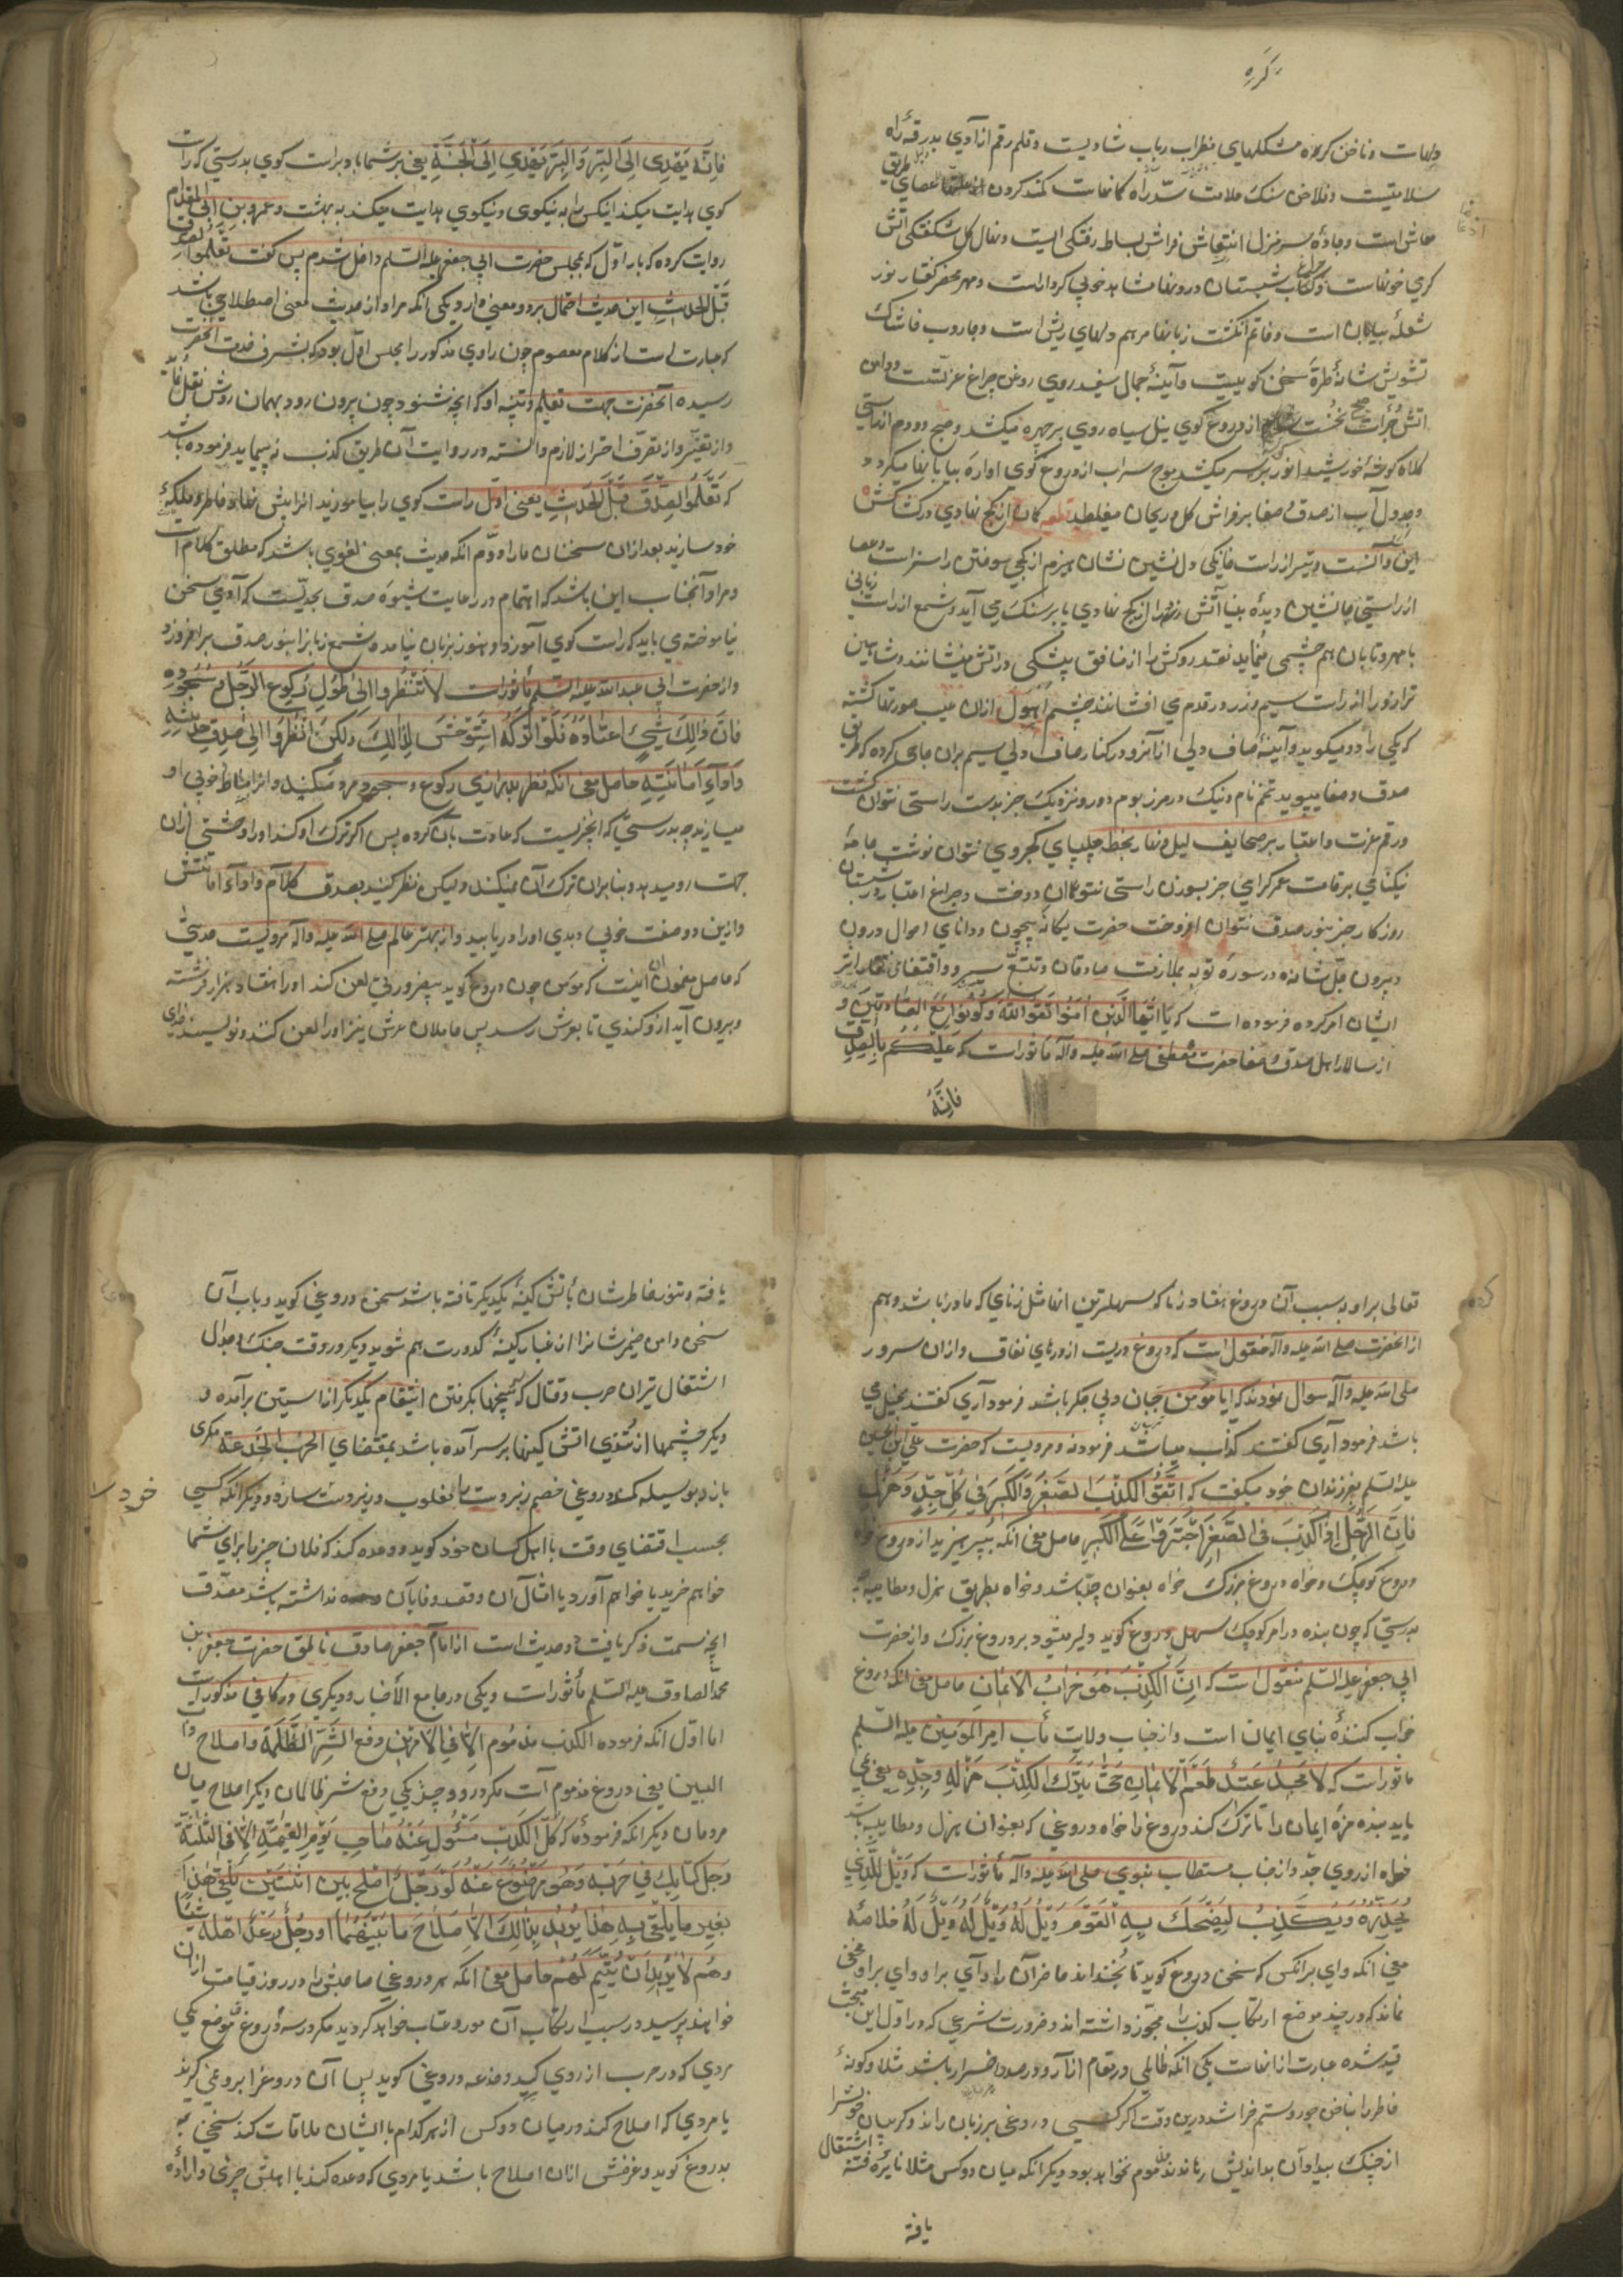 دلهاست و ناخن کره مشکلهای مضراب رباب شادیست و قلم رقم آزادی بدرقهٔ راه
سلامتیست و فلاخن سنک ملامت سدّ راه کمند کردن عصای طریق
معاش است و جادهٔ سر منزل انتعاش فراش بساط رفتکی است و نهال کل شکفتکی آتش
شبستان درونها شاهد خوبی کردار است و مهر محضر کفتار نور
شعلهٔ بیان است و خاتم انکشت زبانها مرهم دلهای ریش است و جاروب خاشاک
تشویش شانهٔ طرهٔ سخن کوییست و آیینهٔ جمال سفید رویی روغن چراغ عزّتست و دامن
آتش جرأت از دروغ کوی نیل سیاه روی بر چهره میکشد و صبح دوم از راستی
کلاه کوشهٔ خورشید انور بر سر میکشد موج سراب از دروغ کوی آوارهٔ بیابانها میکردد
و جدول آب از صدق و صفا بر فراش کل و ریحان میغلطد قطعه کمان از کج نهادی در کشاکش
این و آنست و تیر از راست خانکی دل نشین نشان هیزم از کجی سوختن را سزاست و عصا
از راستی جانشین دیدهٔ بینا آتش را از کج نهادی پا بر سنک می آید و شمع از راست زبانی
با مهر تابان هم چشمی مینماید نقد روکش را از منافق پیشکی در آتش مینشانند و شاهین
ترازو را از راست سیم و زر در قدم می افشانند چشم احول از آن عیب صورتها کشته
که یکی را دو میکوید و آیینهٔ صاف دلی از آنرو در کنار صاف دلی سیم بران جای کرده که طریق
صدق و صفا میپوید تخم نام نیک در مرز بوم دور و نزدیک جز بدست راستی نتوان کشت
و رقم عزت و اعتبار بر صحایف لیل و نهار بخط چلیپای کجروی نتوان نوشت جامهٔ
نیکنامی بر قامت عمر کرامی جز بسوزن راستی نتوان دوخت و چراغ اعتبار در شبستان
روزکار جز بنور صدق نتوان افروخت حضرت یکانهٔ بیچون و دانای احوال درون
و بیرون جل شأنه در سورهٔ توبه بملازمت صادقان و تتبع سیر و اقتفای آثار
ایشان امر کرده فرموده است که یَا اَیُّهَا الَّذِینَ اٰمَنُوا اتَّقُوا اللّٰهَ وَکُونُوا مَعَ الصَّادِقِینَ و
از سالار اهل صدق و صفا حضرت مصطفی صلی اللّه علیه و آله مأثور است که عَلَیْکُمْ بِالصِّدْقِ
فَاِنَّهُ
فَاِنَّهُ یَهْدِی اِلَی الْبِرِّ وَالْبِرُّ یَهْدِی اِلَی الْجَنَّةِ یعنی بر شما باد براست کوی بدرستی که راست
کوی هدایت میکند اینکس را به نیکوی و نیکوی هدایت میکند به بهشت و عمرو بن ابی المقدام
روایت کرده که بار اول که بمجلس حضرت ابی جعفر علیه السلم داخل شدم پس کفت تَعَلَّمُوا الصِّدْقَ
قَبْلَ الْحَدِیثِ این حدیث احتمال بر دو معنی دارد یکی انکه مراد از حدیث معنی اصطلاحی باشد
که عبارت است از کلام معصوم چون راوی مذکور را مجلس اول بود که بشرف خدمت انحضرت
رسیده انحضرت جهت تعلیم و تنبیه او که آنچه شنود چون بیرون رود بهمان روش نقل نماید
و از تغییر و از تصرف احتراز لازم دانسته و در روایت آن طریق کذب نه پیماید فرموده باشد
که تَعَلَّمُوا الصِّدْقَ قَبْلَ الْحَدِیثِ یعنی اول راست کوی را بیاموزید آنرا پیش نهاد خاطر و ملکهٔ
خود سازید بعد ازان سخنان ما را دوّم انکه حدیث بمعنی لغوی باشد که مطلق کلام است
و مراد آنجناب این باشد که اهتمام در رعایت شیوهٔ صدق بحدّیست که آدمی سخن
نیاموخته می باید که راست کوی آموزد و هنوز بزبان نیامده شمع زبانرا بنور صدق برافروزد
و از حضرت ابی عبد اللّه علیه السلم مأثور است لا تَنْظُرُوا اِلٰی طُولِ رُکُوعِ الرَّجُلِ وَ سُجُودِهِ
فَاِنَّ ذٰلِکَ شَیْءٌ اعْتَادَهُ فَلَوْ تَرَکَهُ اسْتَوْحَشَ لِذٰلِکَ وَلٰکِنْ اُنْظُرُوا اِلٰی صِدْقِ حَدِیثِهِ
وَاَدَاءِ اَمَانَتِهِ حاصل معنی انکه نظر بدرازی رکوع و سجود مرد مکنید و انرا مناط خوبی او
مسازید چه بدرستی که ان چیزیست که عادت بآن کرده پس اکر ترک او کند او را وحشتی ازان
جهت رو میدهد و بنا بران ترک آن نمیکند ولیکن نظر کنید بصدق کلام و اداء امانتش
و ازین دو صفت خوبی و بدی او را دریابید و از بهتر عالم صلی اللّه علیه و آله مرویست حدیثی
که حاصل مضمون آن اینست که مؤمن چون دروغ کوید بیضرورتی لعن کند او را هفتاد هزار فرشته
و بیرون آید از او کندی تا بعرش رسد پس حاملان عرش نیز او را لعن کنند و نویسد خدای
تعالی بر او به سبب آن دروغ هفتاد زنا که سهلترین انها مثل زنای که با مادر باشد و هم
از انحضرت صلی اللّه علیه و آله منقول است که دروغ دریست از درهای نفاق و ازان سرور
صلی اللّه علیه و آله سوال نمودند که ایا مؤمن جبان و بی جکر باشد فرمود آری کفتند بخیل می
باشد فرمود آری کفتند کذاب میباشد فرمود نه و مرویست که حضرت علی ابن الحسین
علیه السلم بفرزندان خود میکفت که اِتَّقُوا الْکِذْبَ الصَّغِیرَ وَالْکَبِیرَ فِی کُلِّ جِدٍّ وَهَزْلٍ
فَاِنَّ الرَّجُلَ اِذَا کَذَبَ فِی الصَّغِیرِ اجْتَرَأَ عَلَی الْکَبِیرِ حاصل معنی انکه بپرهیزید از دروغ خواه
دروغ کوچک و خواه دروغ بزرک خواه بعنوان جدّ باشد و خواه بطریق هزل و مطایبه چه
بدرستی که چون بنده در امر کوچک سهل دروغ کوید دلیر میشود بر دروغ بزرک و از حضرت
ابی جعفر علیه السلم منقول است که اِنَّ الْکِذْبَ هُوَ خَرَابُ الْاِیمَانِ حاصل معنی انکه دروغ
خراب کنندهٔ بنای ایمان است و از جناب ولایت مآب امیر المؤمنین علیه السلم
مأثور است که لا یَجِدُ عَبْدٌ طَعْمَ الْاِیمَانِ حَتّٰی یَتْرُکَ الْکِذْبَ هَزْلِهِ وَجِدِّهِ یعنی نمی
یابد بنده مزهٔ ایمان را تا ترک کند دروغ را خواه دروغی که بعنوان هزل و مطایبه باشد
خواه از روی جدّ و از جناب مستطاب نبوی صلی اللّه علیه و آله مأثور است که وَیْلٌ لِلَّذِی
یُحَدِّثُ وَیَکْذِبُ لِیَضْحَکَ بِهِ الْقَوْمُ وَیْلٌ لَهُ وَیْلٌ لَهُ وَیْلٌ لَهُ خلاصهٔ
معنی انکه وای بر انکس که سخن دروغ کوید تا بخنداند حاضران را وای بر او وای بر او مخفی
نماند که در چند موضع ارتکاب کذب را مجوّز داشته اند و ضرورت شرعی که در اول این مبحث
قید شده عبارت از انهاست یکی انکه ظالمی در مقام آزار و در صدد اضرار باشد مثلا و کونهٔ
خاطر را بناخن جور و ستم خراشد درین وقت اکر کسی دروغی بر زبان راند و کریبان خویش را
از چنک بیداد آن بداندیش رهاند مذموم نخواهد بود دیکر انکه میان دو کس مثلا نایرهٔ فتنه اشتعال
یافته
یافته و تنور خاطرشان بآتش کینهٔ یکدیکر تافته باشد سخن دروغی کوید و بآب آن
سخن دامن ضمیرشانرا از غبار کینه و کدورت هم شوید دیکر در وقت جنک و جدال
اشتغال نیران حرب و قتال که تیغها بکرفتن انتقام یکدیکر از استین برآمده و
دیکر چشمها از تندی اتش کینها بر سر آمده باشد بمقتضای الْحَرْبُ خُدْعَةٌ مکری
بازد و بوسیلهٔ دروغی خصم زبردست را مغلوب و زیردست سازد و دیکر انکه کسی
خود را
بحسب اقتضای وقت با اهل کسان خود کوید و وعده کند که فلان چیز را برای شما
خواهم خرید یا خواهم آورد یا امثال آن و قصد وفا بآن نداشته باشد مصدّق
انچه سمت ذکر یافت دو حدیث است از امام جعفر صادق ناطق حضرت جعفر بن
محمد الصادق علیه السلم مأثور است و یکی در جامع الاخبار و دیکری در کافی مذکور است
اما اول انکه فرموده الکذب مذموم الا فی الامرین دفع الشرّ الظَّلَمَة و اصلاح ذات
البین یعنی دروغ مذموم است مکر در دو چیز یکی دفع شر ظالمان دیکر اصلاح میان
مردمان دیکر انکه فرموده که کُلُّ الْکَذِبِ مَسْئُولٌ عَنْهُ صَاحِبُهُ یَوْمَ الْقِیٰمَةِ اِلَّا فِی الثَّلٰثَةِ
رَجُلٌ کَایَدَ فِی حَرْبِهِ وَهُوَ مَوْضُوعٌ عَنْهُ اَوْ رَجُلٌ اَصْلَحَ بَیْنَ اثْنَیْنِ یَلْقٰی هٰذَا
بِغَیْرِ مَا یَلْقٰی بِهِ هٰذَا یُرِیدُ بِذٰلِکَ الْاِصْلَاحَ مَا بَیْنَهُمَا اَوْ رَجُلٌ وَعَدَ اَهْلَهُ شَیْئًا
وَهُوَ لَا یُرِیدُ اَنْ یُتِمَّ لَهُمْ حاصل معنی انکه هر دروغی صاحبش را در روز قیامت ازان
خواهند پرسید و در سبب ارتکاب آن مورد عتاب خواهد کردید مکر در سه دروغ موضع یکی
مردی که در حرب از روی کید و خدعه دروغی کوید پس آن دروغرا بر وی نمی کیرند
یا مردی که اصلاح کند در میان دو کس از هر کدام با ایشان ملاقات کند سخنی که
بدروغ کوید و غرضش ازان اصلاح باشد یا مردی که وعده کند با اهلش چیزی و ارادهٔ